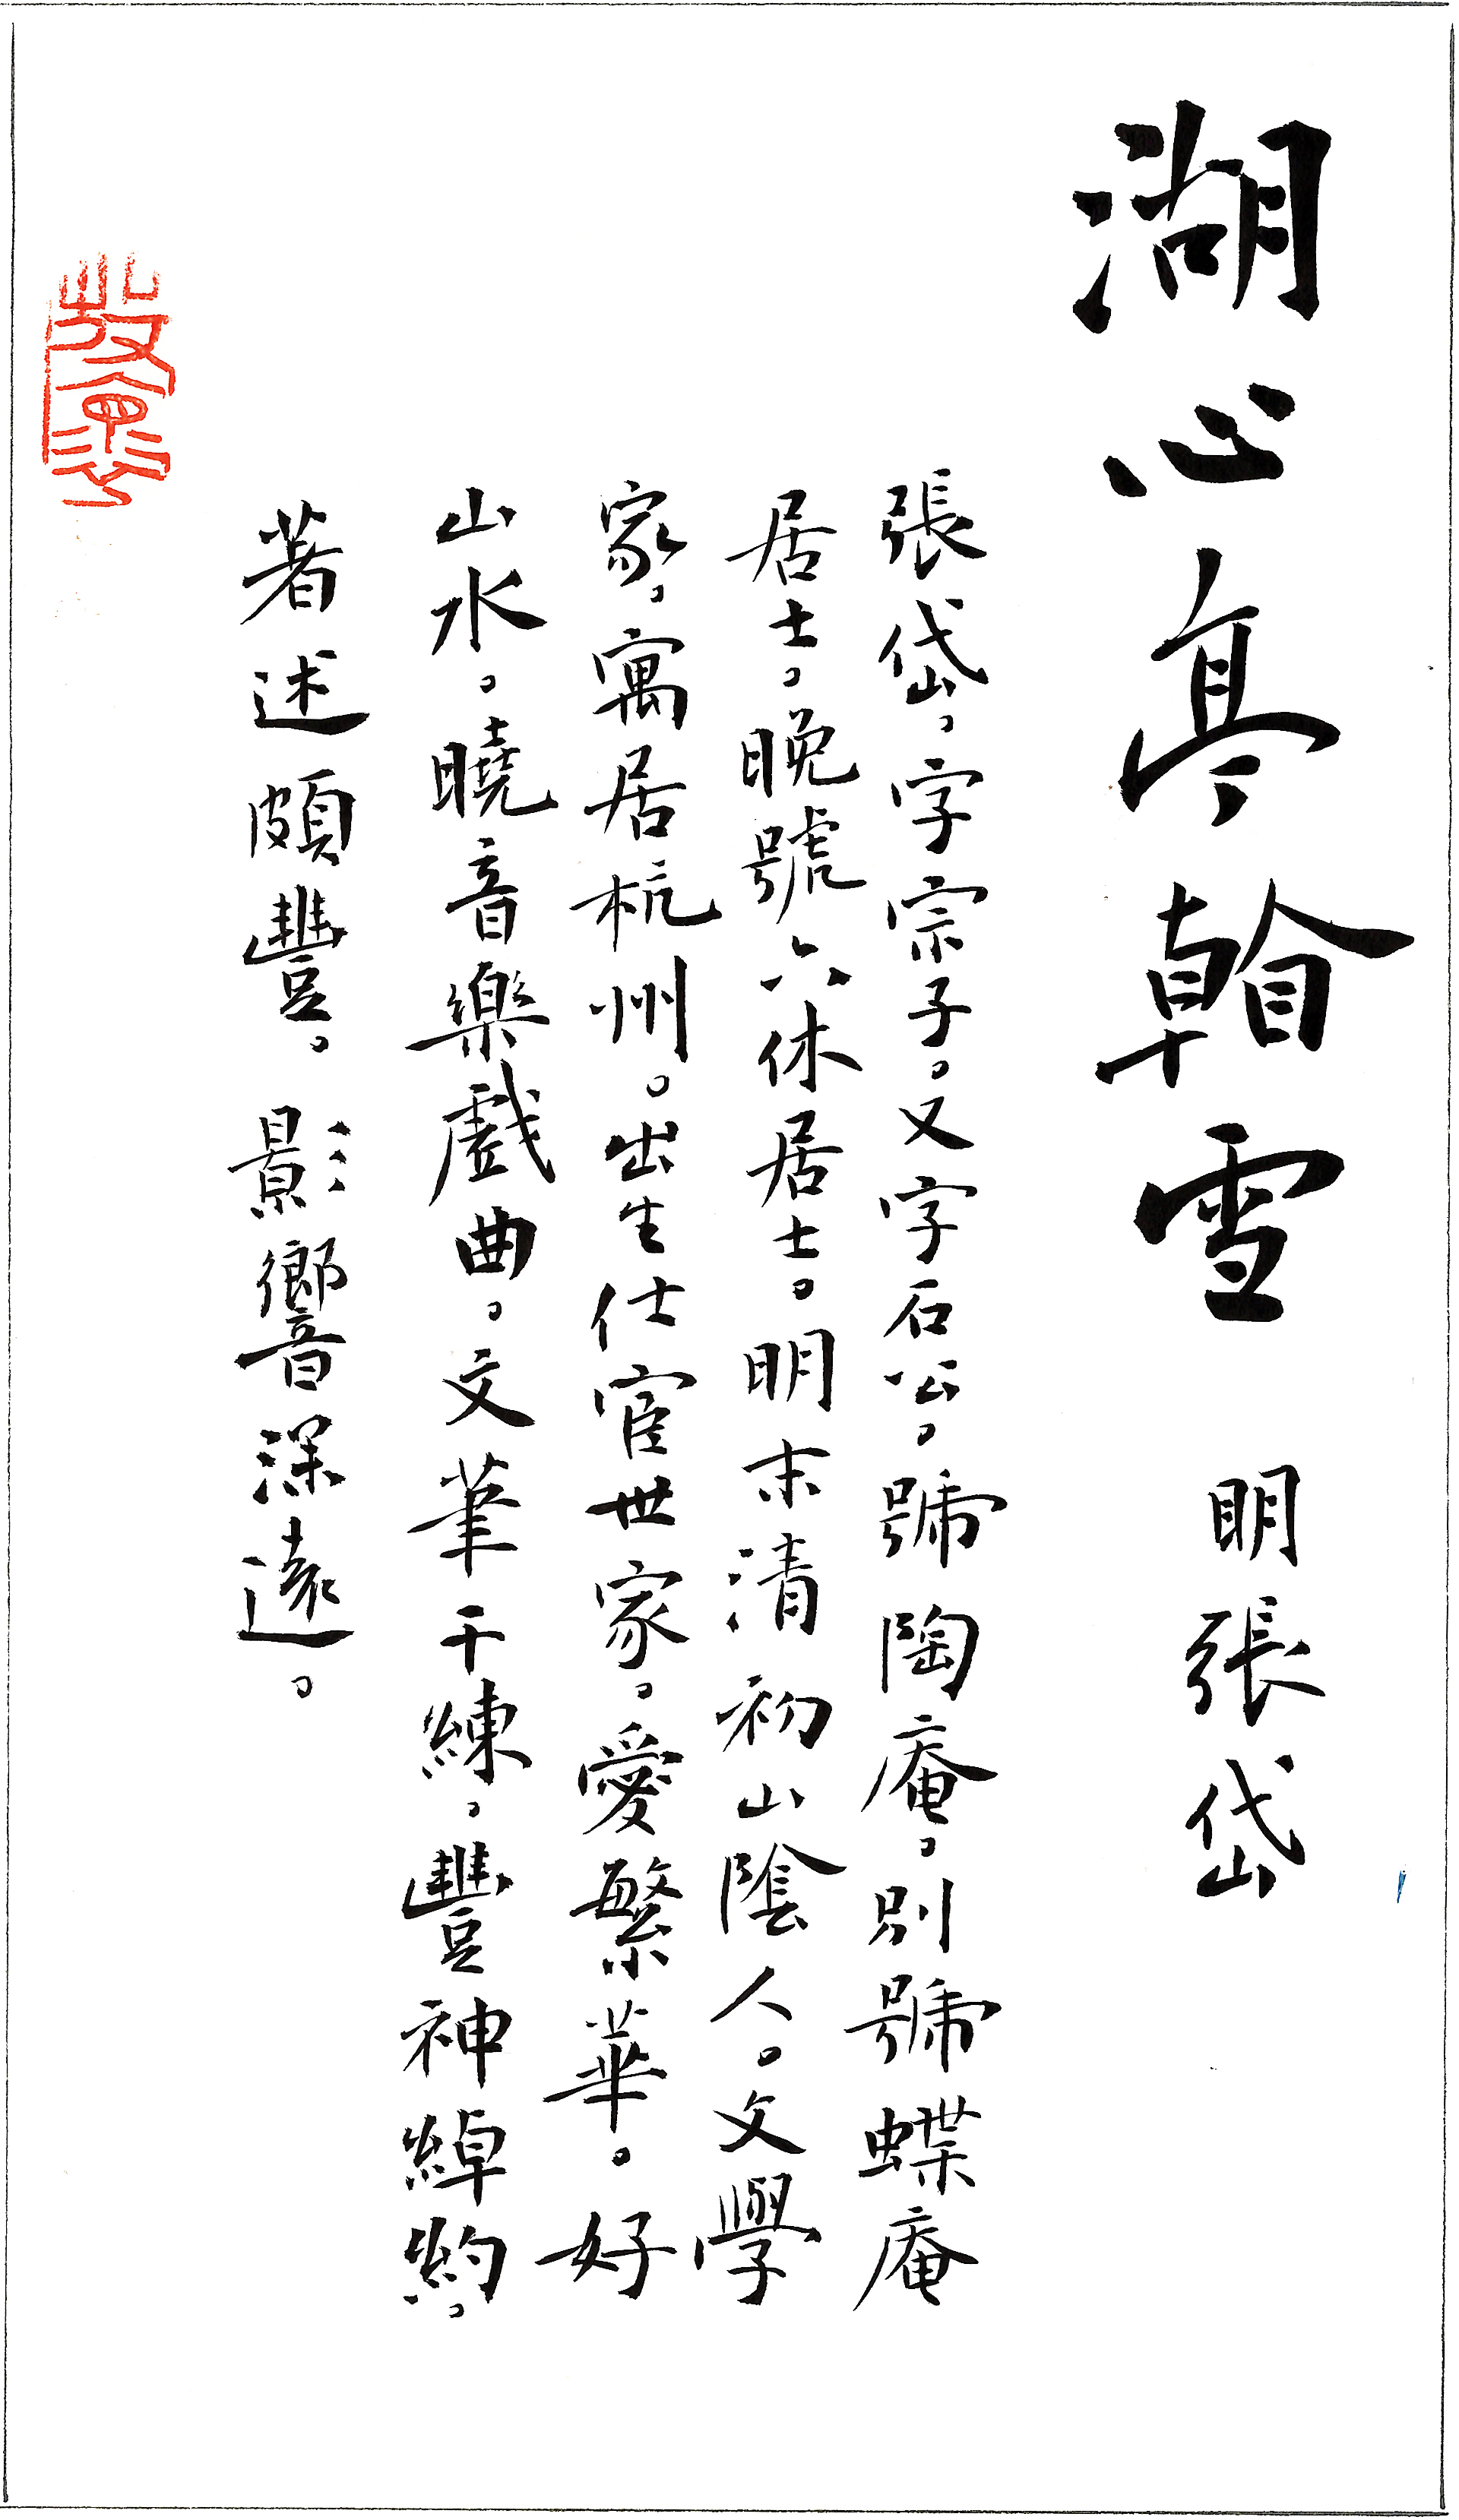 湖心亭雪 明張岱
張岱,字宗子。又字石公。號陶庵,別號蝶庵
居士。晚號六休居士。明末清初山陰人。文學
家,寓居杭州。出生仕宦世家。愛繁華。好
山水。曉音樂戲曲。文筆干練,豐神綽約。
著述頗豐。影響深遠。